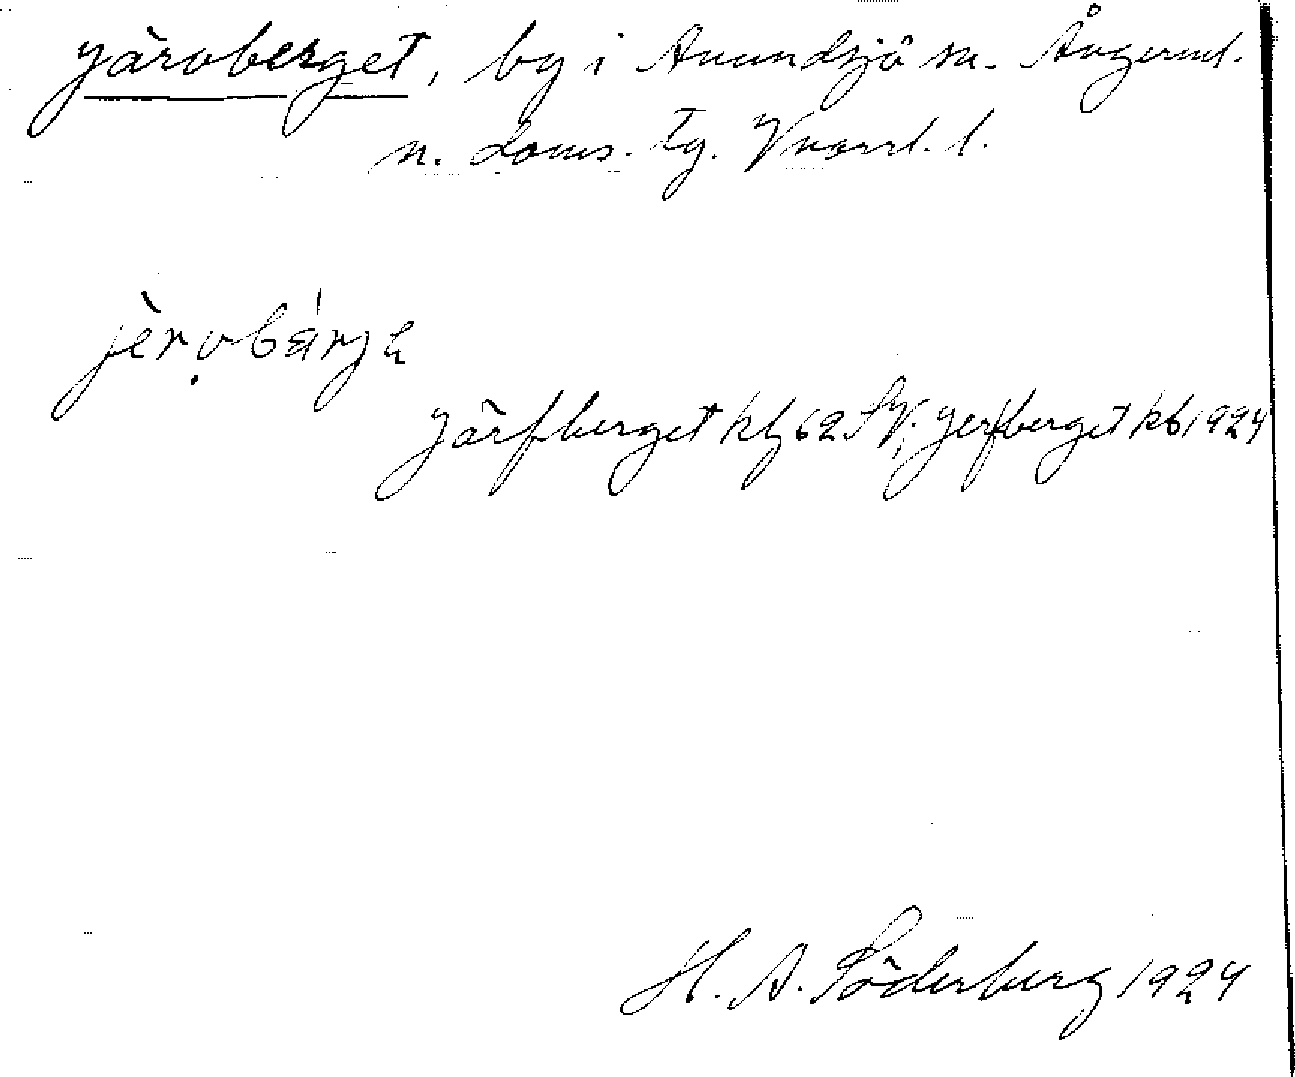 Järvberget, by i Anundsjö sn. Ångerml.
n. doms. tg. Vnorrl. l.
jèrvbérjɛ
Järfberget kbl 62 SV; Jerfberget kb 1924
H. A. Söderberg 1924